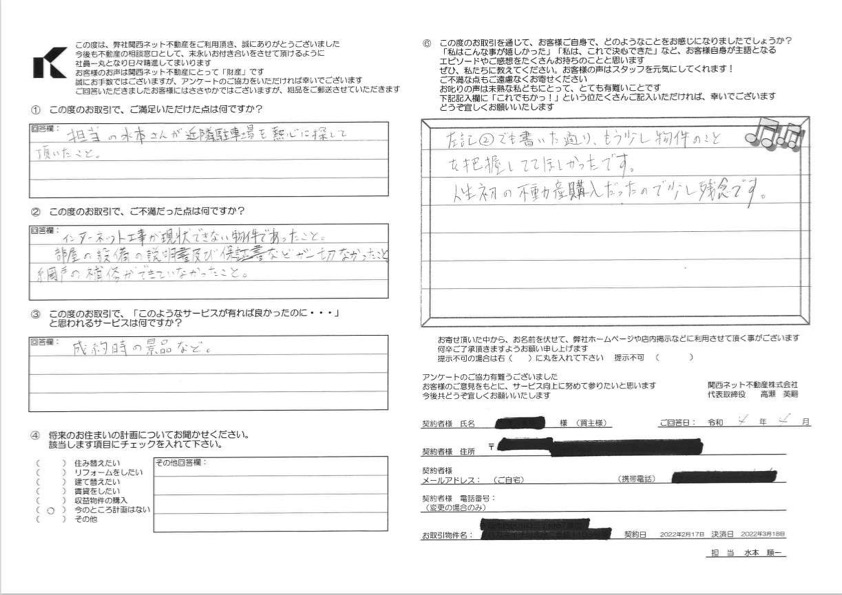 この度は、弊社関西ネット不動産をご利用頂き、誠にありがとうございました
今後も不動産の相談窓口として、末永いお付き合いをさせて頂けるように
社員一丸となり日々精進してまいります
お客様のお声は関西ネット不動産にとって「財産」です
誠にお手数ではございますが、アンケートのご協力をいただければ幸いでございます
ご回答いただきましたお客様にはささやかではございますが、粗品をご郵送させていただきます
① この度のお取引で、ご満足いただけた点は何ですか？
回答欄：
担当の水本さんが近隣駐車場を熱心に探して
頂いたこと。
② この度のお取引で、ご不満だった点は何ですか？
回答欄：
インターネット工事が現状できない物件であったこと。
部屋の設備の説明書及び保証書などが一切なかったこと
網戸の補修ができていなかったこと。
③ この度のお取引で、「このようなサービスが有れば良かったのに・・・」
と思われるサービスは何ですか？
回答欄：
成約時の景品など。
④ 将来のお住まいの計画についてお聞かせください。
該当します項目にチェックを入れて下さい。
（　　）住み替えたい
（　　）リフォームをしたい
（　　）建て替えたい
（　　）賃貸をしたい
（　　）収益物件の購入
（ ○ ）今のところ計画はない
（　　）その他
その他回答欄：
⑥ この度のお取引を通じて、お客様ご自身で、どのようなことをお感じになりましたでしょうか？
「私はこんな事が嬉しかった」「私は、これで決心できた」など、お客様自身が主語となる
エピソードやご感想をたくさんお持ちのことと思います
ぜひ、私たちに教えてください。お客様の声はスタッフを元気にしてくれます！
ご不満な点もご遠慮なくお寄せください
お叱りの声は未熟な私どもにとって、とても有難いことです
下記記入欄に「これでもかっ！」という位たくさんご記入いただければ、幸いでございます
どうぞ宜しくお願いします
左記②でも書いた通り、もう少し物件のこと
を把握しててほしかったです。
人生初の不動産購入だったので少し残念です。
お寄せ頂いた中から、お名前を伏せて、弊社ホームページや店内掲示などに利用させて頂く事がございます
何卒ご了承頂きますようお願い申し上げます
提示不可の場合は右（　　）に丸を入れて下さい　提示不可（　　　）
アンケートのご協力有難うございました
お客様のご意見をもとに、サービス向上に努めて参りたいと思います
今後共どうぞ宜しくお願いいたします
関西ネット不動産株式会社
代表取締役　高瀬 英嗣
契約者様 氏名　様（買主様）　ご回答日：令和 4 年 4 月
契約者様 住所　〒
契約者様
メールアドレス：（ご自宅）　（携帯電話）
契約者様 電話番号：
（変更の場合のみ）
お取引物件名：　契約日　2022年2月17日　決済日　2022年3月18日
担 当　水本 順一